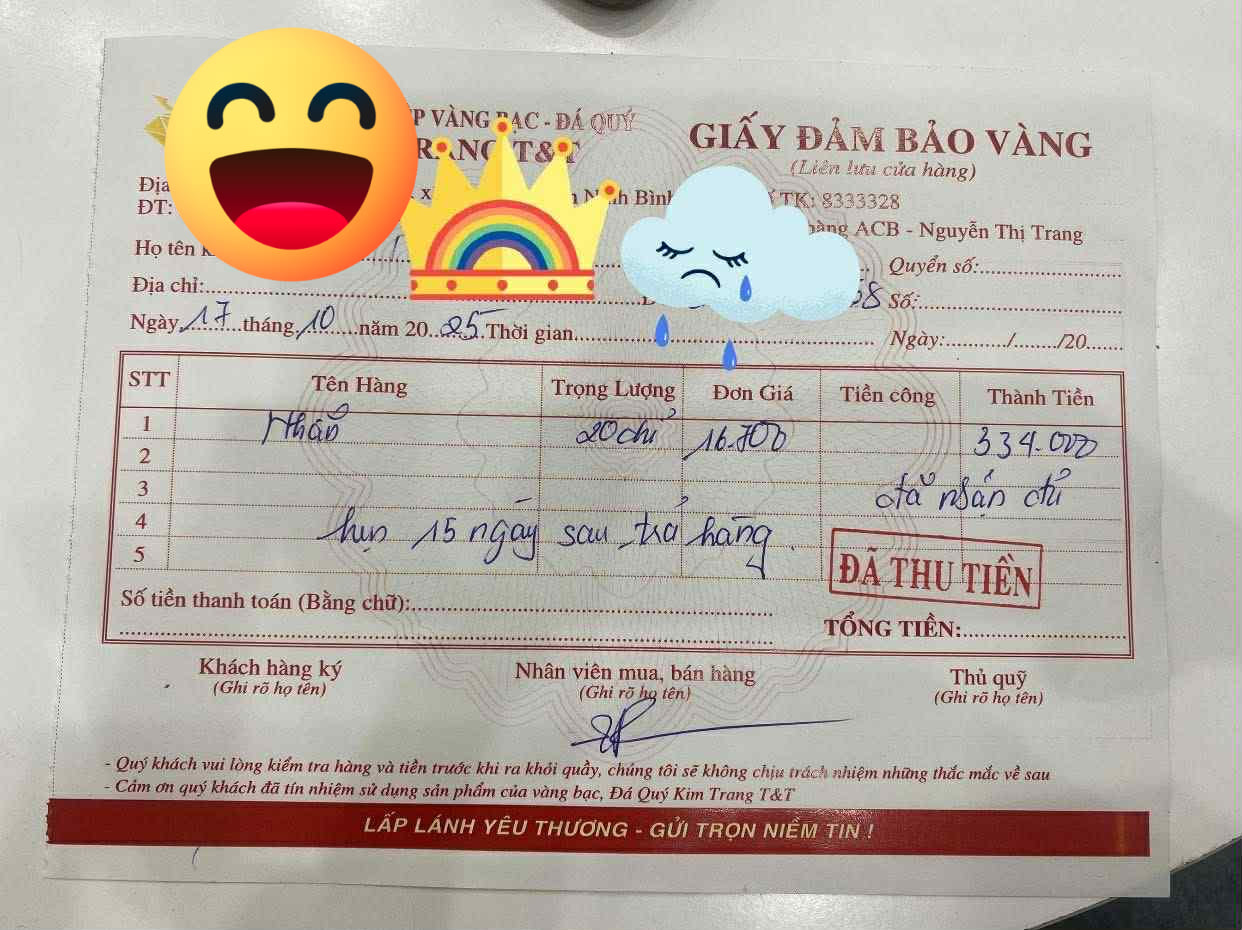 VÀNG BẠC - ĐÁ QUÝ
TRANG T&T
GIẤY ĐẢM BẢO VÀNG
(Liên lưu cửa hàng)
Địa
Ninh Bình
TK: 8333328
ĐT:
hàng ACB - Nguyễn Thị Trang
Họ tên
Quyển số:
Địa chỉ:
Số:
Ngày 17 tháng 10 năm 2025 Thời gian
Ngày: / /20
STT Tên Hàng Trọng Lượng Đơn Giá Tiền công Thành Tiền
1 Nhẫn 20 chỉ 16.700 334.000
2
3 đã nhận đủ
4 hẹn 15 ngày sau trả hàng.
5
ĐÃ THU TIỀN
Số tiền thanh toán (Bằng chữ):
TỔNG TIỀN:
Khách hàng ký Nhân viên mua, bán hàng Thủ quỹ
(Ghi rõ họ tên) (Ghi rõ họ tên) (Ghi rõ họ tên)
- Quý khách vui lòng kiểm tra hàng và tiền trước khi ra khỏi quầy, chúng tôi sẽ không chịu trách nhiệm những thắc mắc về sau
- Cảm ơn quý khách đã tín nhiệm sử dụng sản phẩm của vàng bạc, Đá Quý Kim Trang T&T
LẤP LÁNH YÊU THƯƠNG - GỬI TRỌN NIỀM TIN !